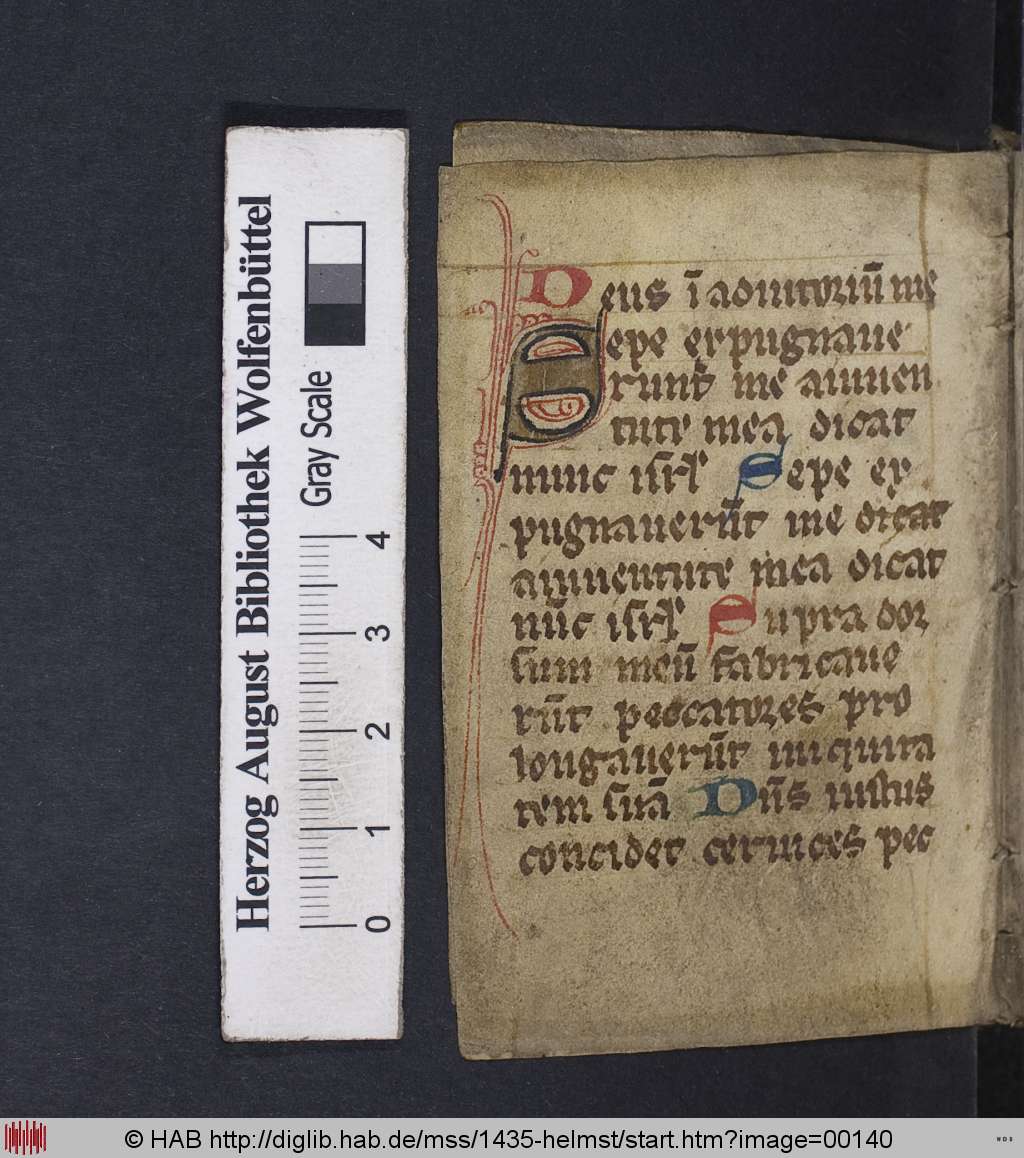 Herzog August Bibliothek Wolfenbüttel
Gray Scale
0 1 2 3 4
Deus ī adiutoriū me
Sepe expugnaue
runt me aiuuen
tute mea dicat
nunc isrl̄ Sepe ex
pugnauerūt me dicat
aiuuentute mea dicat
nūc isrl̄ Supra dor
sum meū fabricaue
rūt peccatores pro
longauerūt iniquita
tem suā Dn̄s iustus
concidet ceruices pec
© HAB http://diglib.hab.de/mss/1435-helmst/start.htm?image=00140